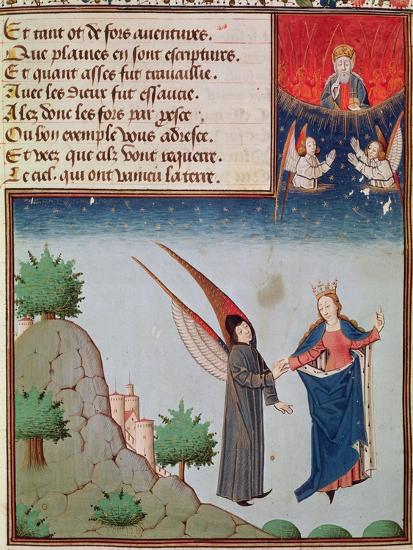 Et tant ot de fors auentures.
Que plaines en sont escriptures.
Et quant asses fut trauaillie.
Auec les dieux fut essaucie.
Alez donc les fors par presce.
Ou bon exemple vous adresce.
Et veez que cilz vont requerre.
Le ciel. qui ont vaincu la terre.